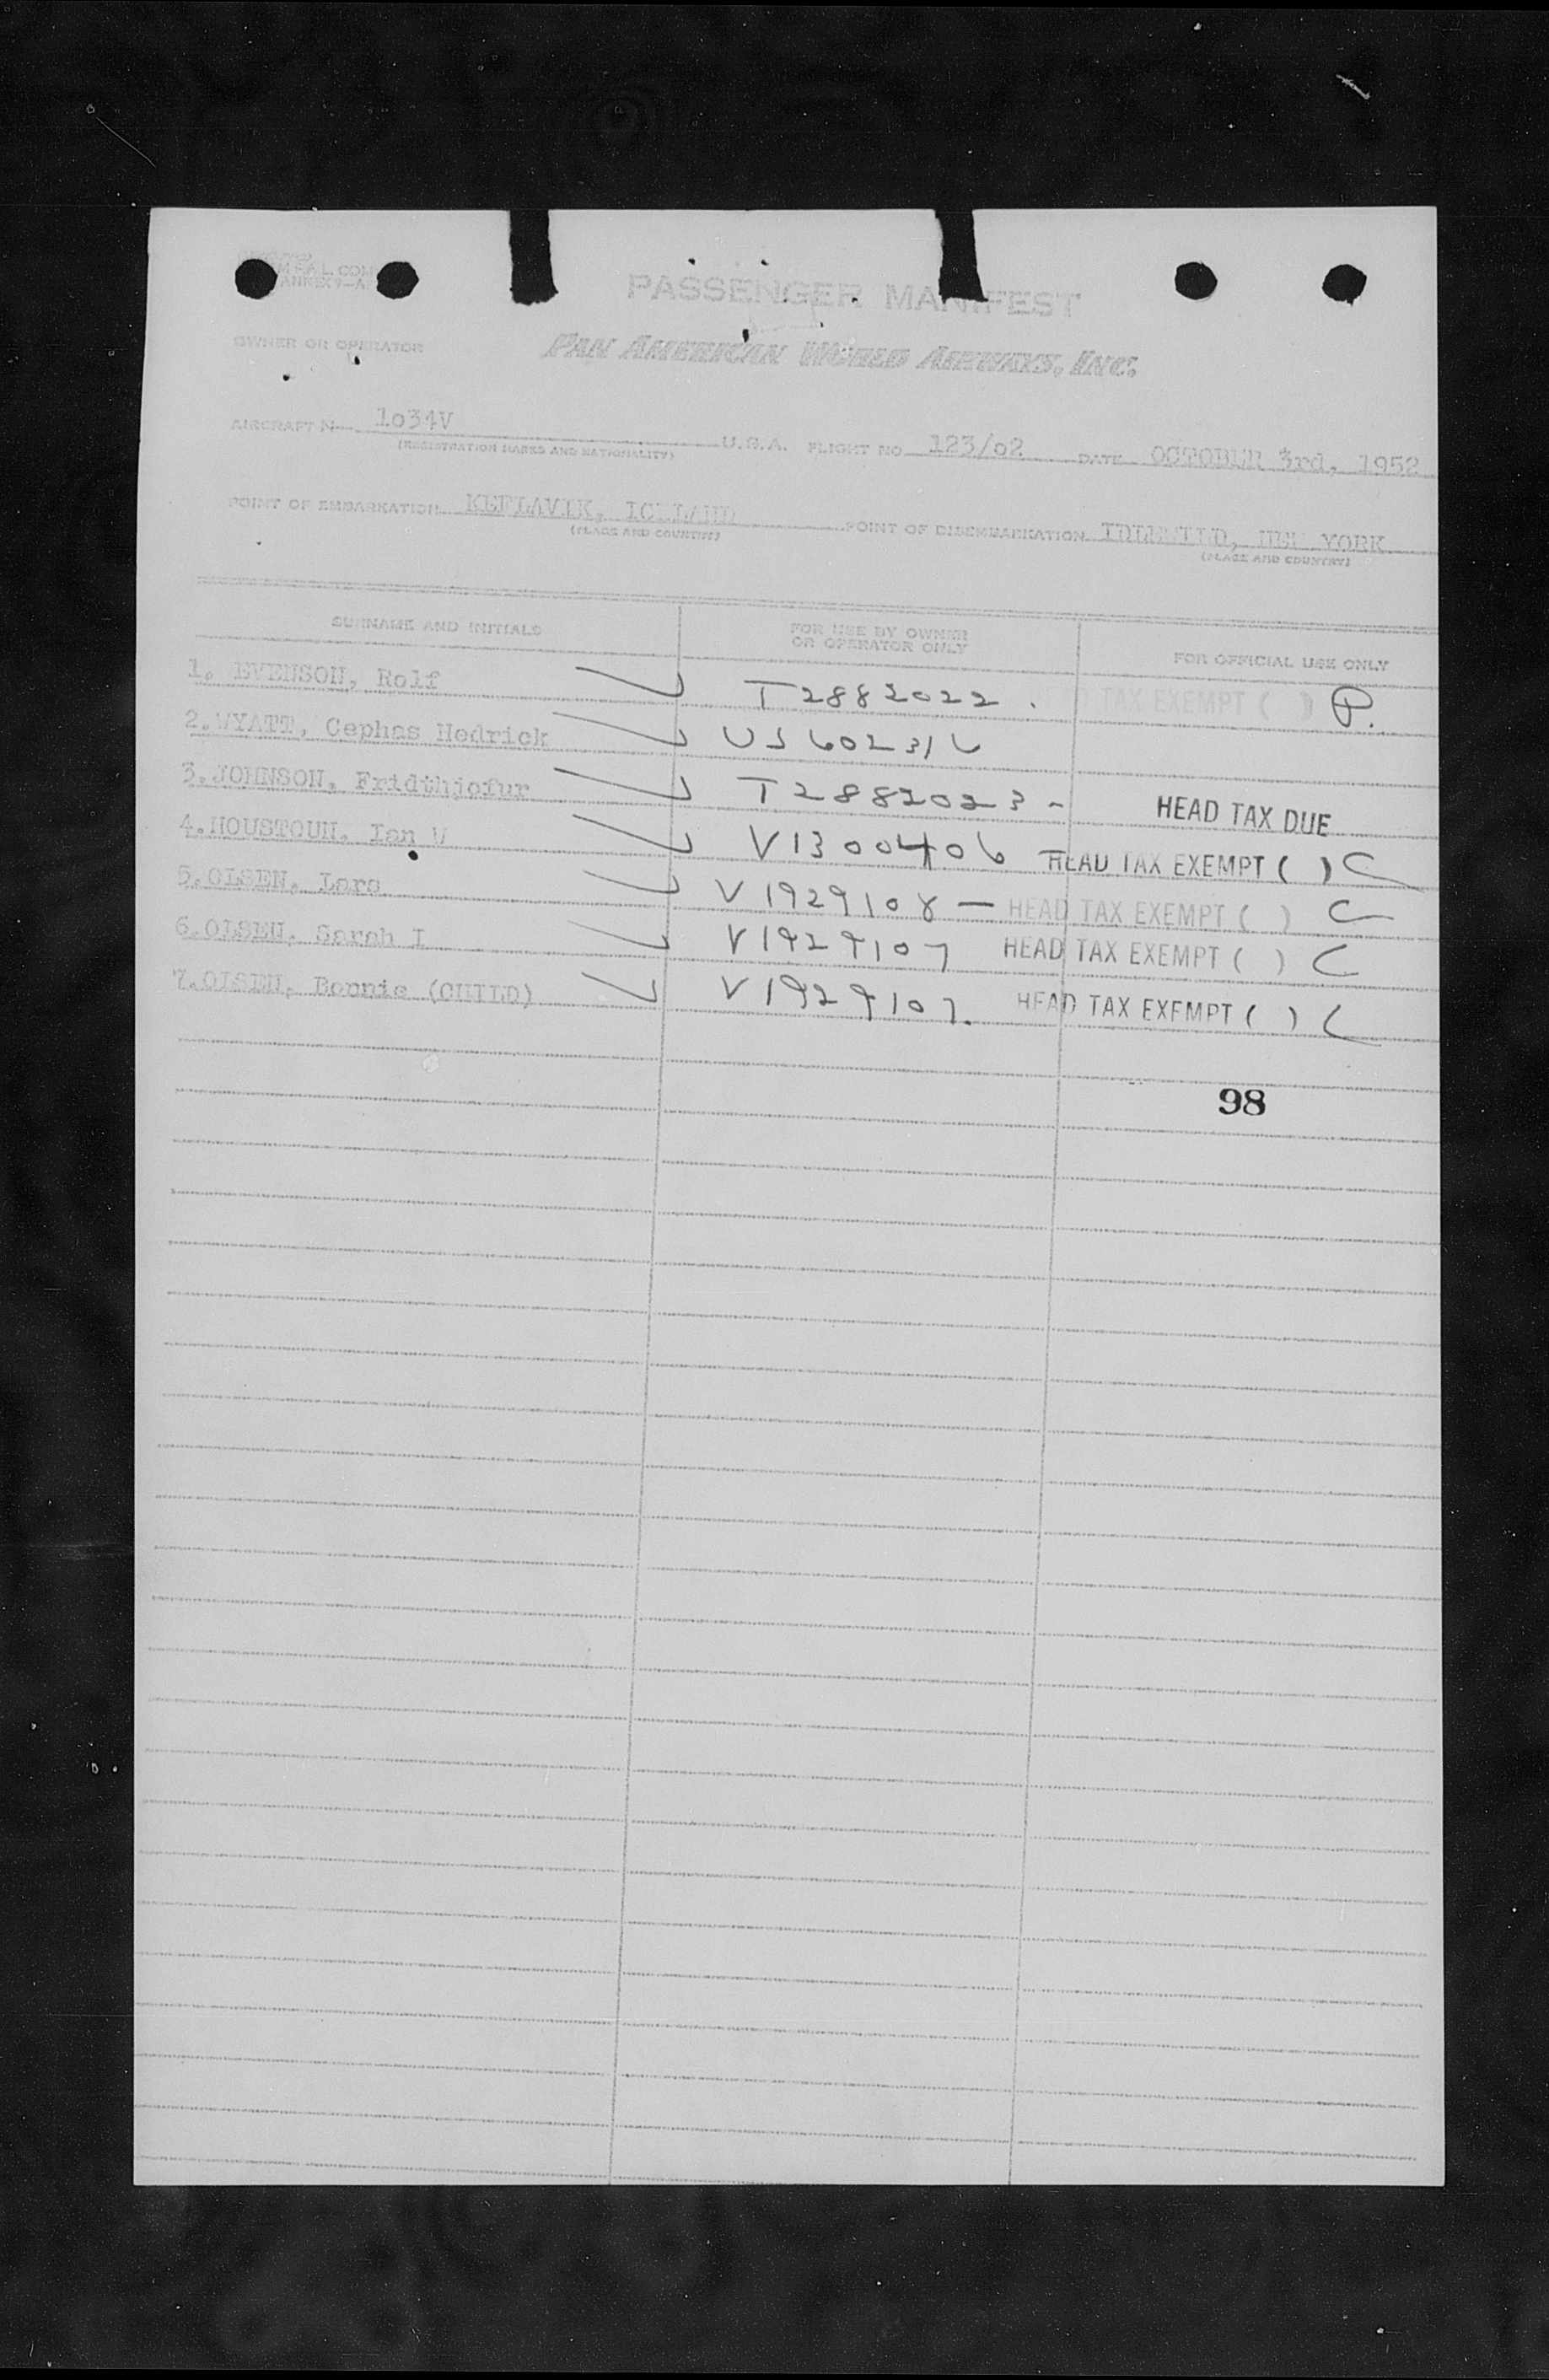 PASSENGER MANIFEST
OWNER OR OPERATOR
PAN AMERICAN WORLD AIRWAYS, INC.
AIRCRAFT N 1o34V U.S.A. FLIGHT NO 123/o2 DATE OCTOBER 3rd, 1952
(REGISTRATION MARKS AND NATIONALITY)
POINT OF EMBARKATION KEFLAVIK, ICELAND POINT OF DISEMBARKATION IDLEWILD, NEW YORK
(PLACE AND COUNTRY) (PLACE AND COUNTRY)
SURNAME AND INITIALS FOR USE BY OWNER OR OPERATOR ONLY FOR OFFICIAL USE ONLY
1. EVENSON, Rolf T2882022. TAX EXEMPT ( ) P.
2.WYATT, Cephas Hedrick US602316
3.JOHNSON, Fridthjofur T2882023 - HEAD TAX DUE
4.HOUSTOUN, Ian W V1300406 HEAD TAX EXEMPT ( ) C
5.OLSEN, Lars V1929108 — HEAD TAX EXEMPT ( ) C
6.OLSEN, Sarah I V1929107 HEAD TAX EXEMPT ( ) C
7.OLSEN, Bonnie (CHILD) V1929107. HEAD TAX EXEMPT ( ) C
98